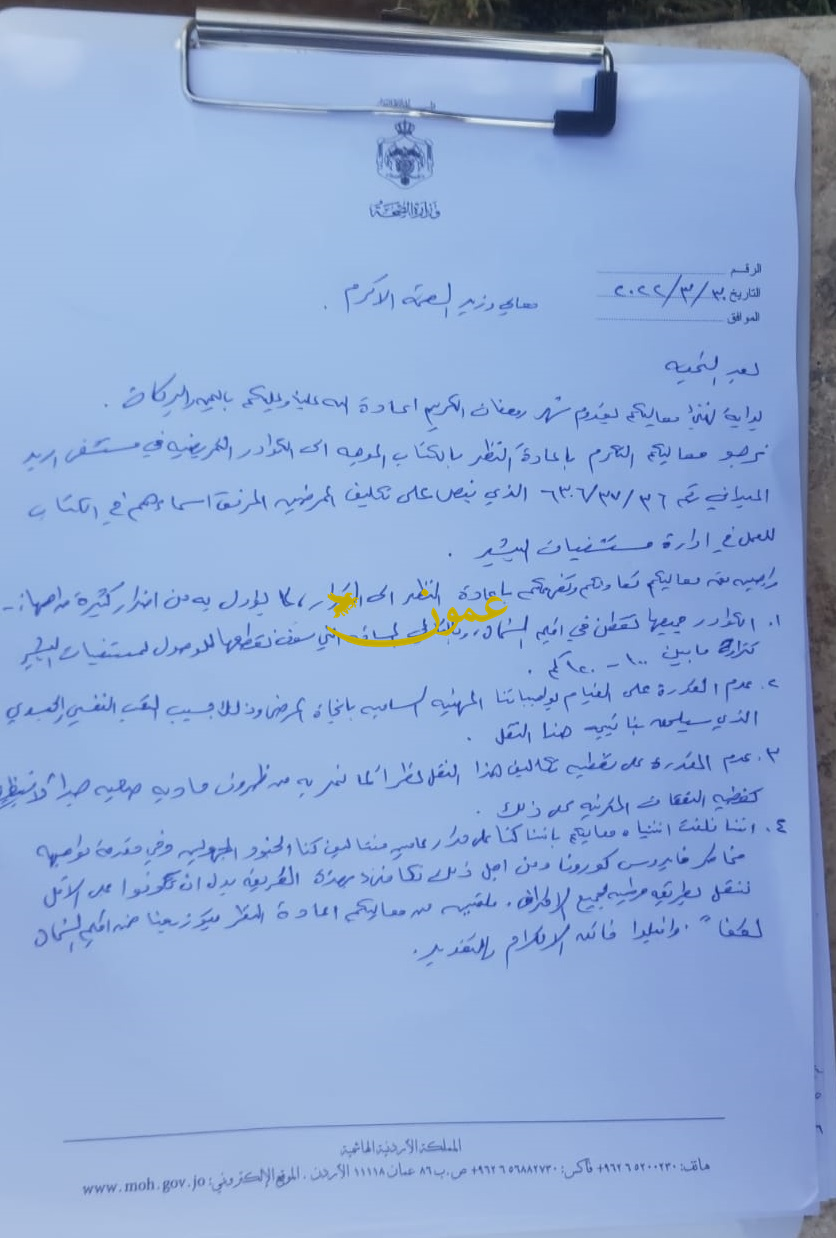 وزارة الصحة
الرقم
التاريخ ٢٠٢٢/٣/٣٠
الموافق
معالي وزير الصحة الاكرم .
بعد التحيه
بداية نهنئ معاليكم بقدوم شهر رمضان الكريم اعادة الله علينا وعليكم باليمن والبركات .
نرجو معاليكم التكرم بإعادة النظر بالكتاب الموجه الى الكوادر التمريضيه في مستشفى اربد
الميداني رقم ٦٣٠٦/٣٧/٣٦ الذي ينص على تكليف ممرضين المرفق اسماءهم في الكتاب
للعمل في ادارة مستشفيات البشير .
راجيين من معاليكم تعاونكم وتفهمكم بإعادة النظر الى القرار ، لما يؤول به من اضرار كثيرة من اهمها :-
عمون
١. الكوادر جميعها تقطن في اقليم الشمال ، وبالتالي المسافه التي سوف نقطعها للوصول لمستشفيات البشير
تتراوح ما بين ١٠٠ - ١٢٠ كم .
٢. عدم القدرة على القيام بواجباتنا المهنيه الساميه باتجاه المرضى وذلك بسبب التعب النفسي والجسدي
الذي سيلحق بنا نتيجة هذا التنقل .
٣. عدم المقدرة على تغطيه تكاليف هذا النقل نظراً لما نمر به من ظروف ماديه صعبه جداً لا نستطيع
تغطيه النفقات المترتبه على ذلك .
٤. اننا نلفت انتباه معاليكم باننا كنا على مدار عامين متتاليين كنا الجنود المجهولين وفي مقدمة مواجهه
مخاطر فايروس كورونا ومن اجل ذلك نكافئ بهذه الطريقه بدل ان تكونوا على الاقل
ننقل بطريقه مرضيه لجميع الاطراف . ملتمسين من معاليكم اعادة النظر بتوزيعنا ضمن اقليم الشمال
لطفاً . واقبلوا فائق الاحترام والتقدير .
المملكة الأردنية الهاشمية
هاتف: ٥٢٠٠٢٣٠ ٦ ٩٦٢+ فاكس: ٥٦٨٨٢٧٣٠ ٦ ٩٦٢+ ص.ب ٨٦ عمان ١١١١٨ الأردن . الموقع الإلكتروني: www.moh.gov.jo